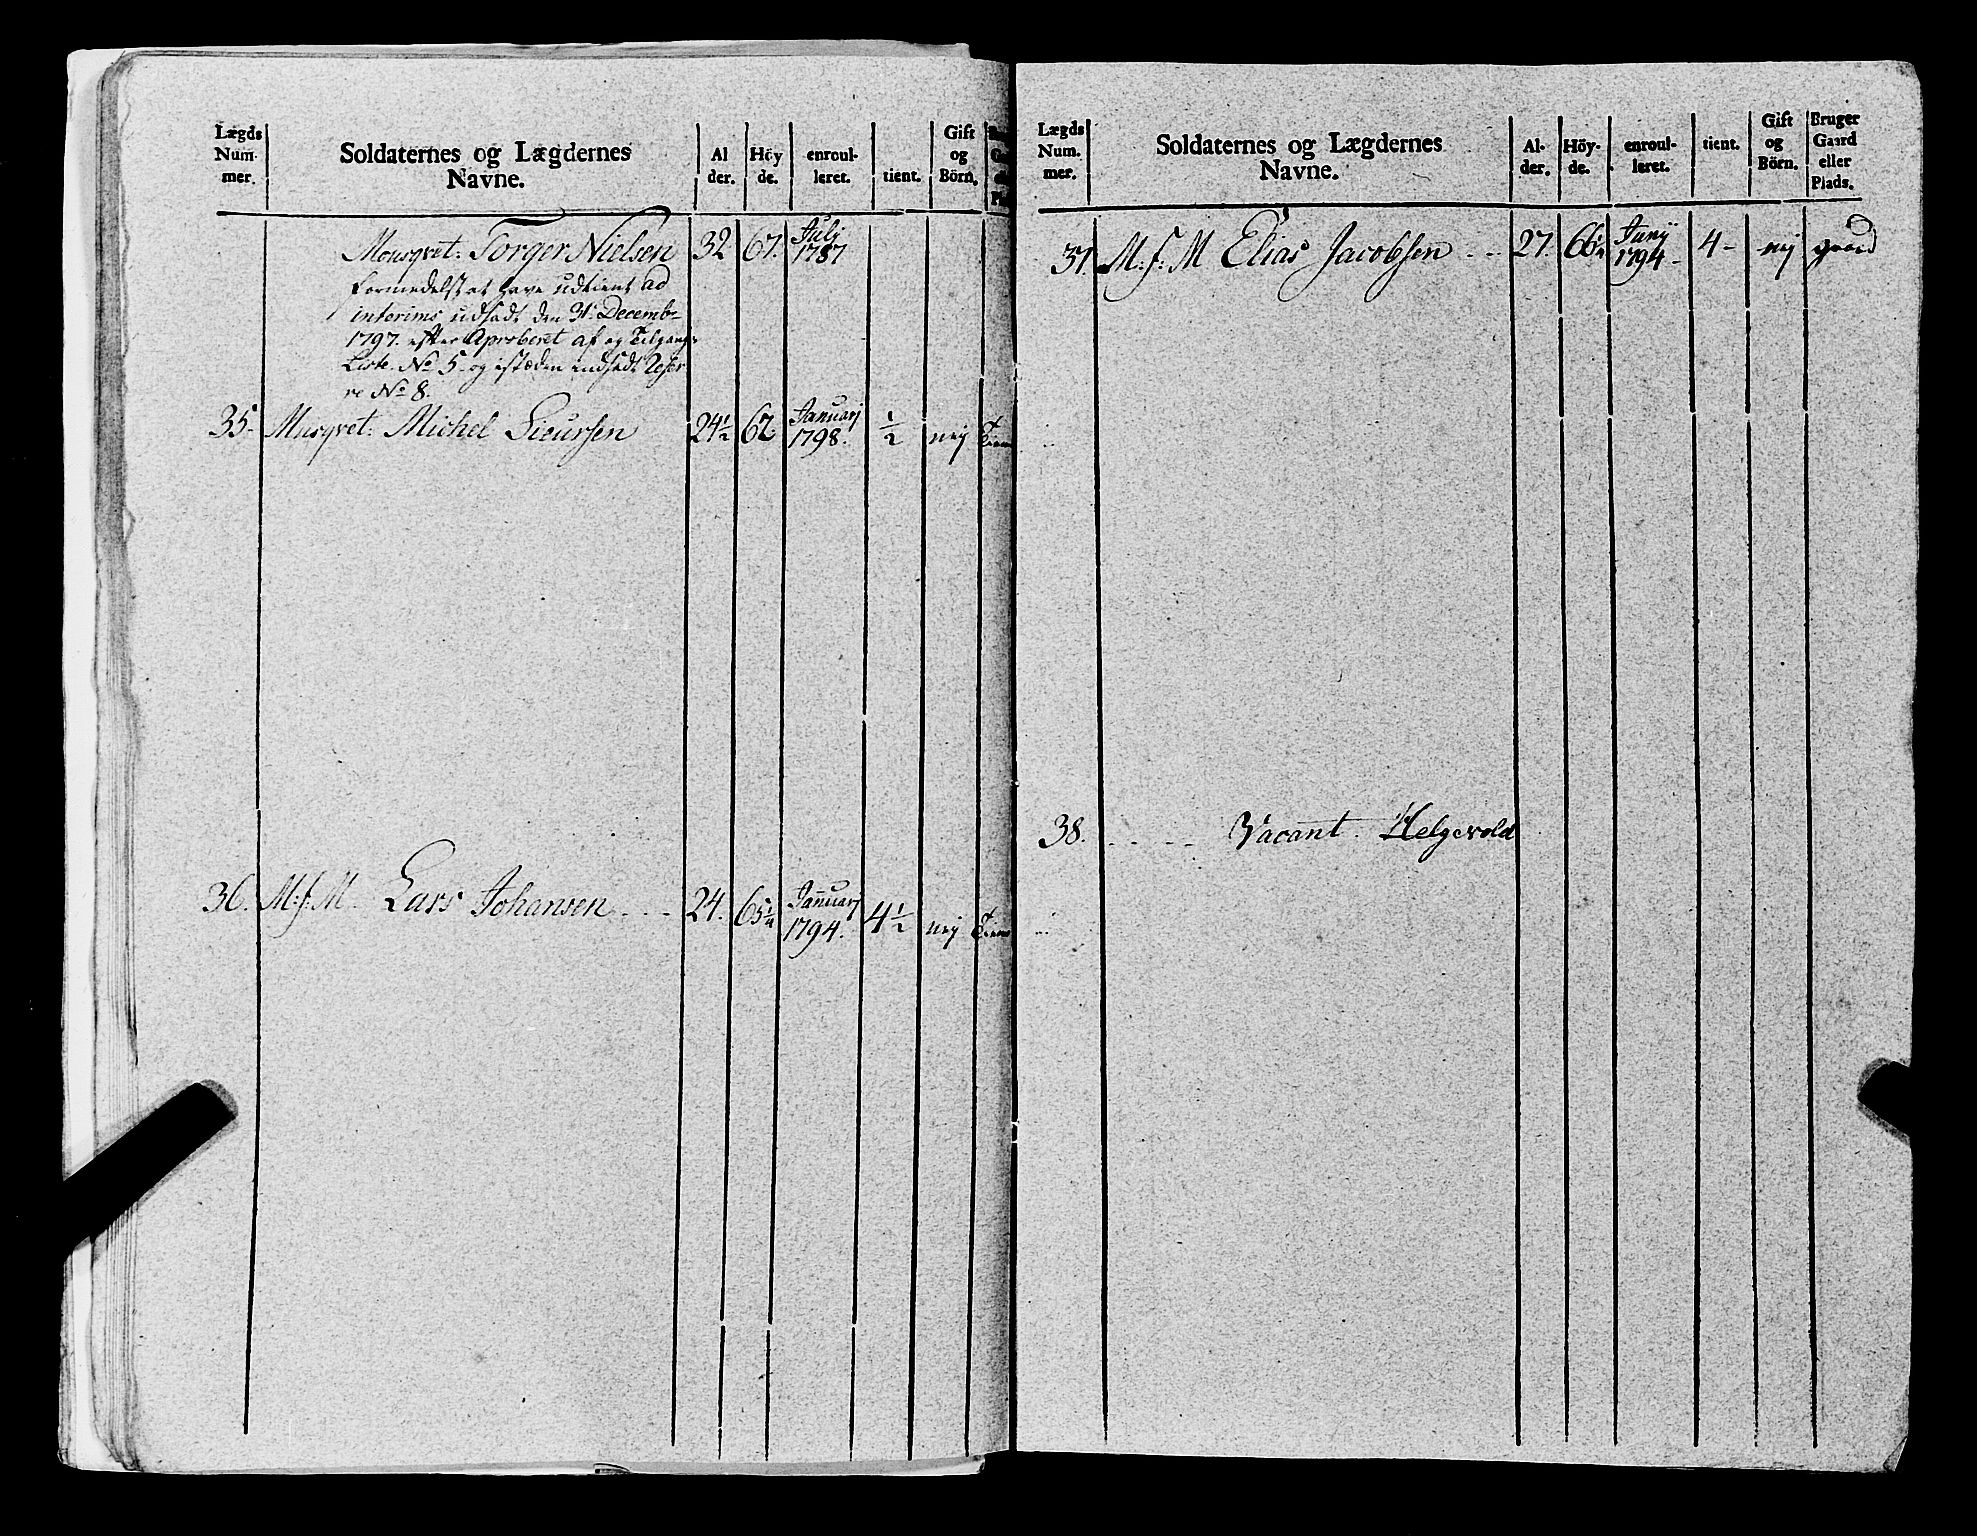 Lægds Num- mer.
Soldaternes og Lægdernes Navne.
Al der.
Höy de.
enroul- leret.
tient.
Gift og Börn.
Mousqvet: Torger Nielsen 32 67. Julj 1787
formedelst at have udtient ad
interims udsadt den 31. Decemb-
1797. efter Aproberet af og Tilgangs
Liste. No 5 og istæden indsadt Reser
re No 8.
35. Musqvet: Michel Sieursen 24½ 62 Januarj 1798. ½ nej
36. M:f:M. Lars Johansen 24. 65¼ Januarj 1794. 4½ nej
Lægds Num. mer.
Soldaternes og Lægdernes Navne.
Al- der.
Höy- de.
enroul- leret.
tient.
Gift og Börn.
Bruger Gaard eller Plads.
37. M:f:M Elias Jacobsen 27. Junij 1794 4- nej gaard
38. Vacant. Helgevold